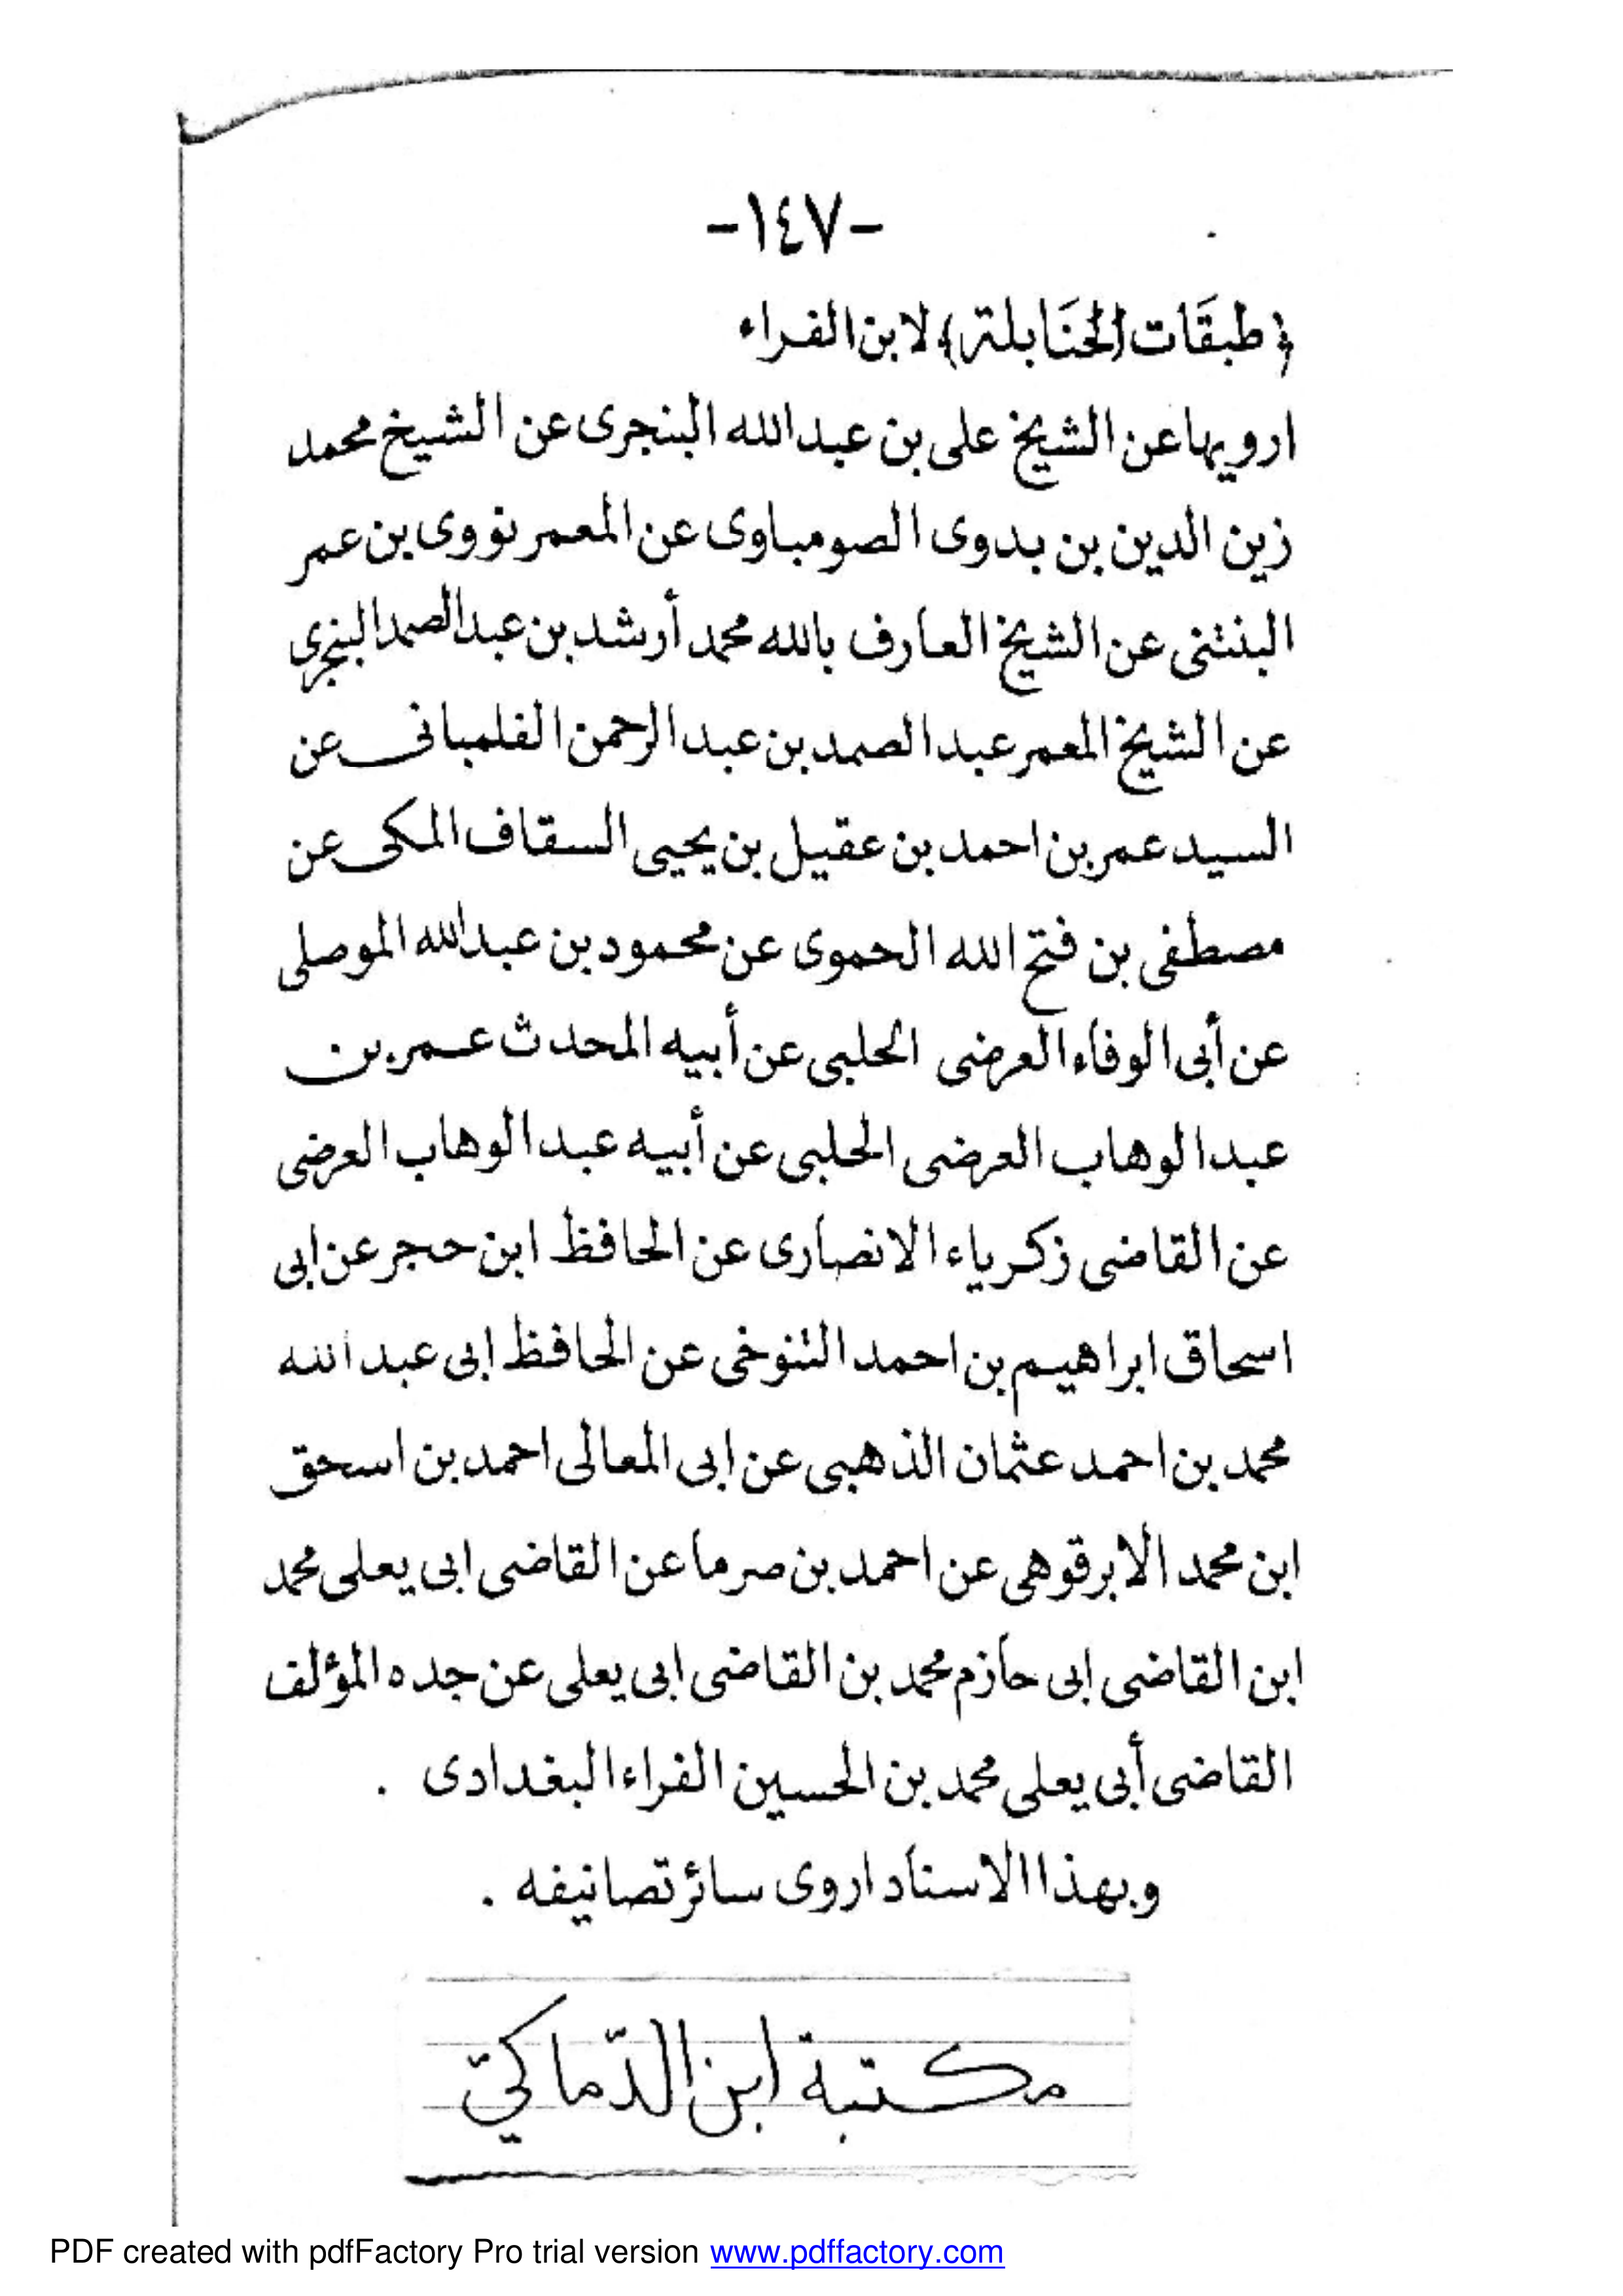 -١٤٧-
﴿طبقَات الحنَابلة﴾ لابن الفراء
ارويها عن الشيخ على بن عبد الله البنجرى عن الشيخ محمد
زين الدين بن بدوى الصومباوى عن المعمر نووى بن عمر
البنتنى عن الشيخ العارف بالله محمد أرشد بن عبد الصمد البنجرى
عن الشيخ المعمر عبد الصمد بن عبد الرحمن الفلمبانى عن
السيد عمر بن احمد بن عقيل بن يحيى السقاف المكى عن
مصطفى بن فتح الله الحموى عن محمود بن عبد الله الموصلى
عن أبى الوفاء العرضى الحلبى عن أبيه المحدث عمر بن
عبد الوهاب العرضى الحلبى عن أبيه عبد الوهاب العرضى
عن القاضى زكرياء الانصارى عن الحافظ ابن حجر عن ابى
اسحاق ابراهيم بن احمد التنوخى عن الحافظ ابى عبد الله
محمد بن احمد عثمان الذهبى عن ابى المعالى احمد بن اسحق
ابن محمد الابرقوهى عن احمد بن صرما عن القاضى ابى يعلى محمد
ابن القاضى ابى حازم محمد بن القاضى ابى يعلى عن جده المؤلف
القاضى أبى يعلى محمد بن الحسين الفراء البغدادى .
وبهذا الاسناد اروى سائر تصانيفه .
مكتبة ابن الدّماكيّ
PDF created with pdfFactory Pro trial version www.pdffactory.com